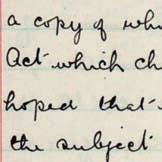 a copy of
Act which
hoped that
the subject